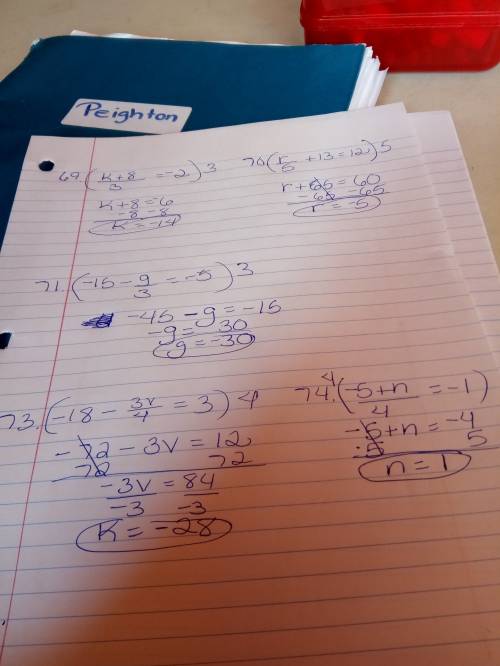 Peighton
69. (k+8/3 = -2) 3
k+8 = -6
-8 -8
k = -14
70. (r/5 + 13 = 12) 5
r + 65 = 60
-65 -65
r = -5
71. (-15 - g/3 = -5) 3
-45 - g = -15
-g = 30
g = -30
73. (-18 - 3v/4 = 3) 4
-72 - 3v = 12
72 72
-3v = 84
-3 -3
K = -28
74. 4 (-5+n/4 = -1)
-5+n = -4
+5 5
n = 1